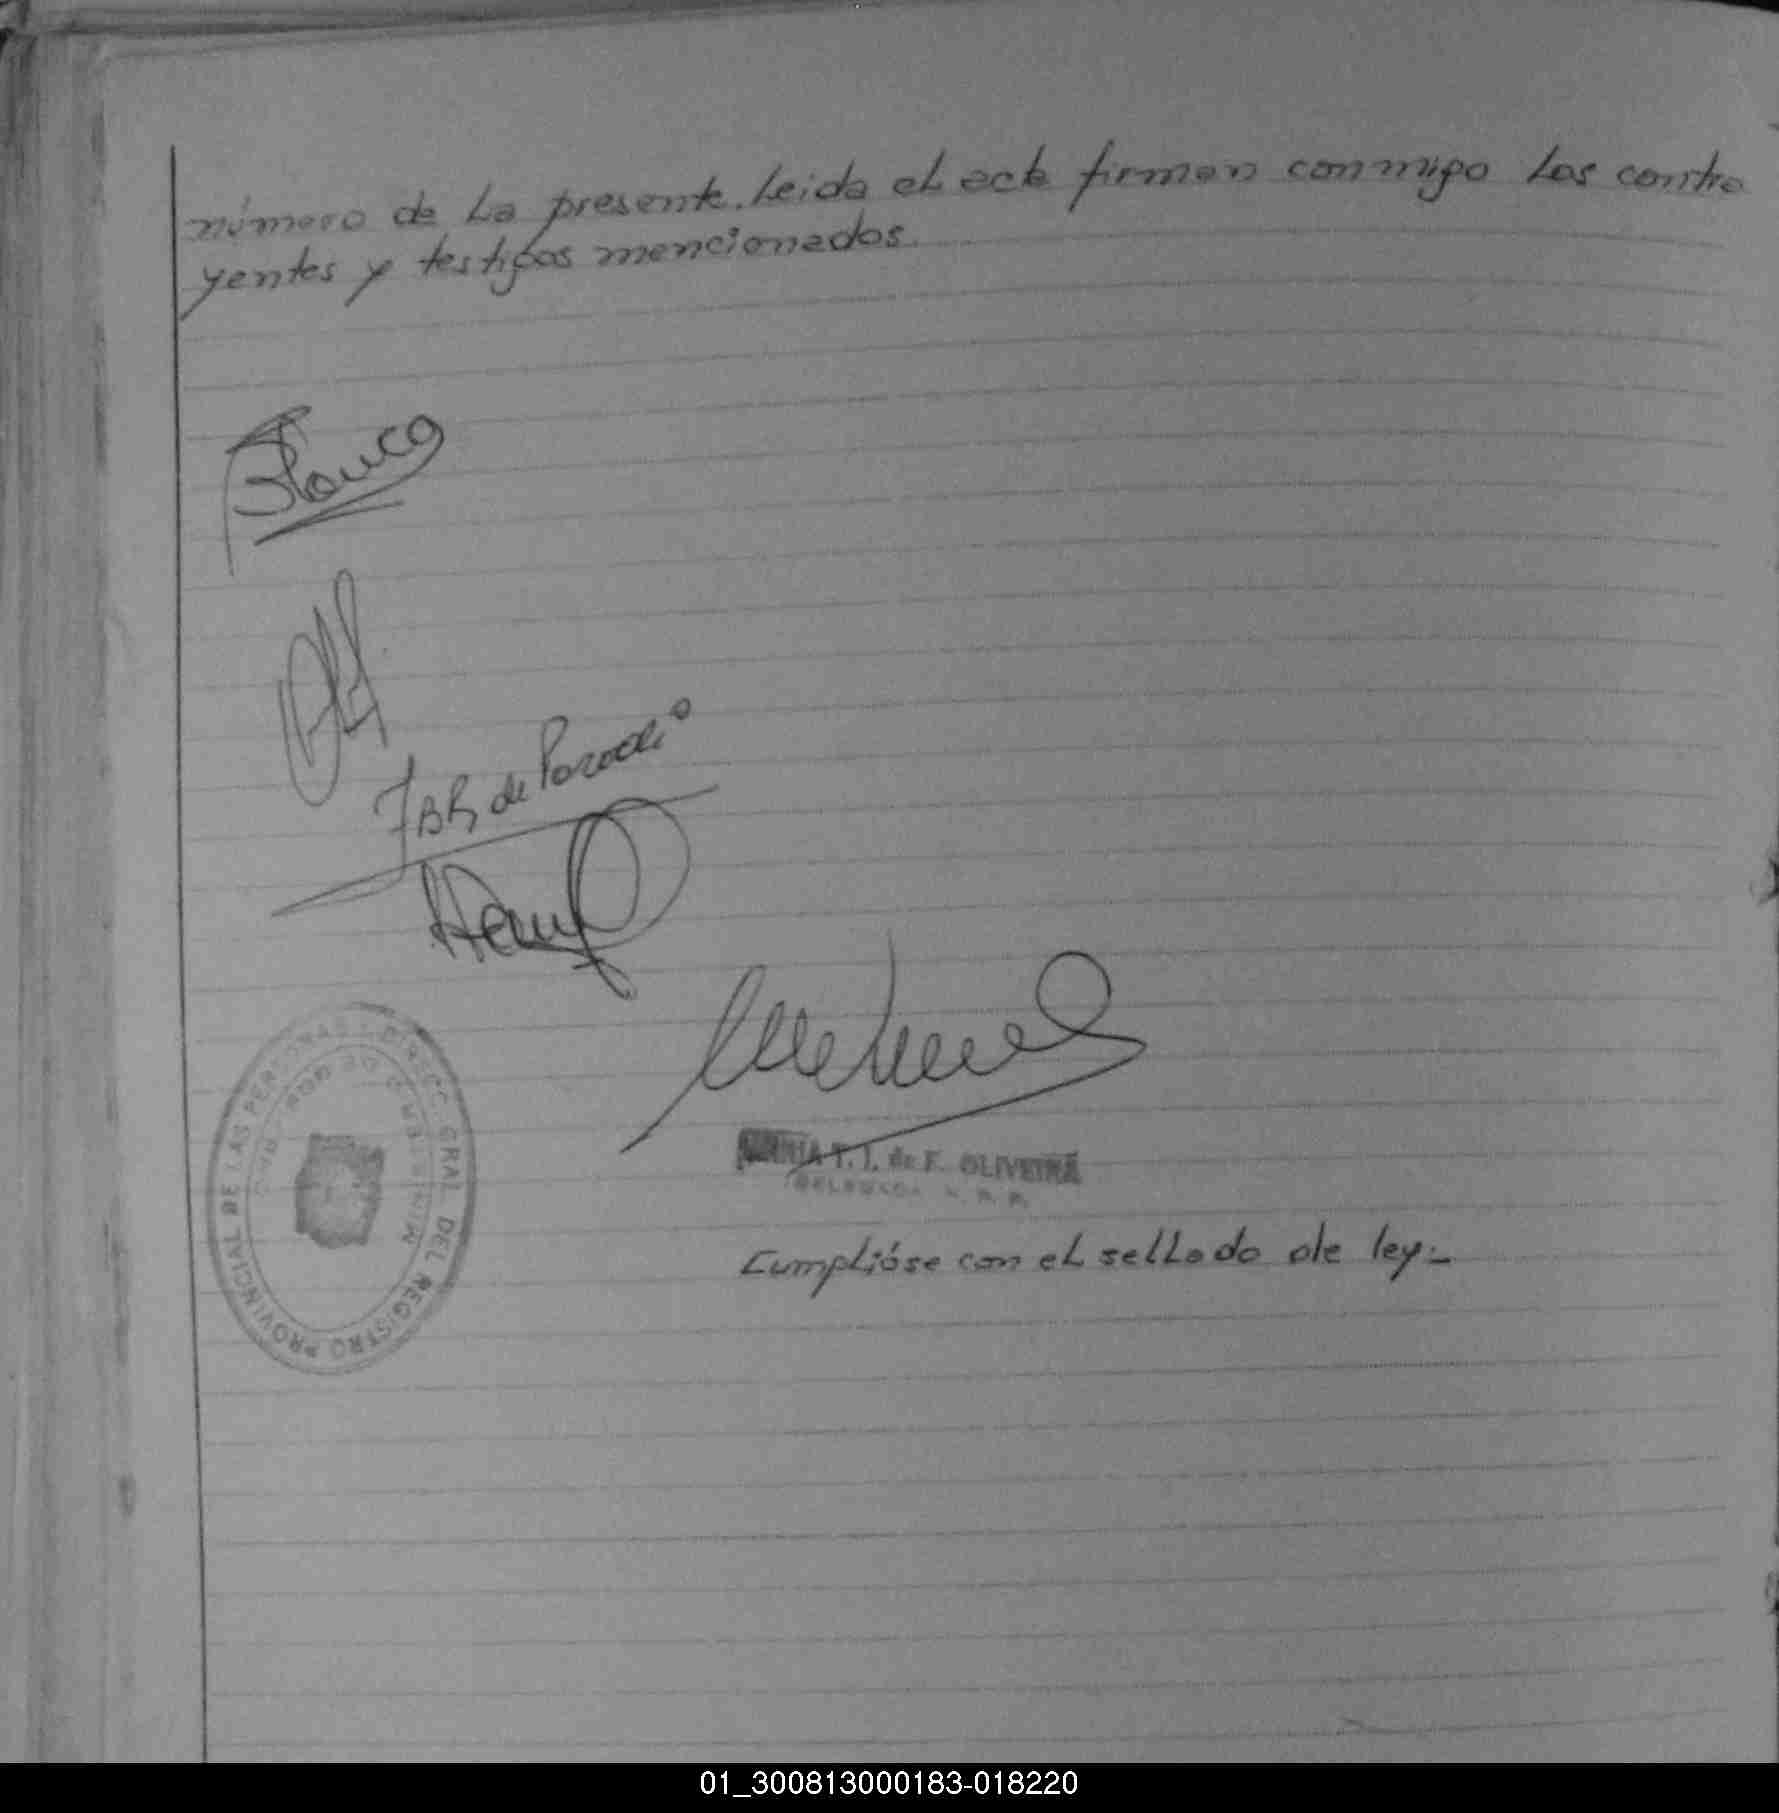 número de la presente. Leida el acta firman conmigo los contra
yentes y testigos mencionados.
Blanco
de Parodi
T. I. de F. OLIVEIRA
DELEGADA R. P. P.
DIRECC. GRAL. DEL REGISTRO PROVINCIAL DE LAS PERSONAS
MINISTERIO DE GOB.
Cumplióse con el sellado de ley:_
01_300813000183-018220